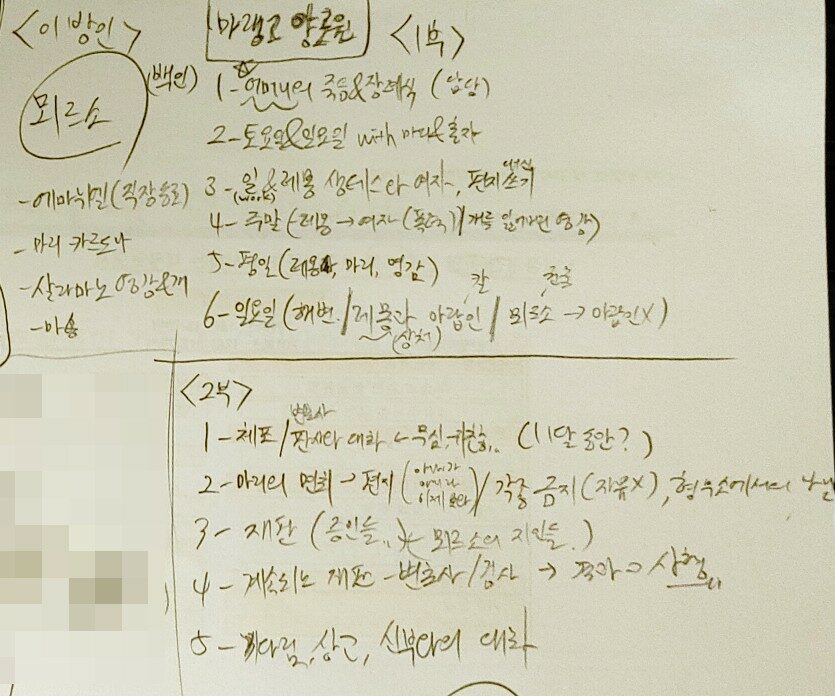 <이방인>
뫼르소
(백인)
-에마뉘엘(직장동료)
-마리 카르도나
-살라마노 영감&개
-마송
마랭고 양로원
<1부>
1-어머니의 죽음&장례식 (담담)
2-토요일&일요일 with 마리&혼자
3-일&레몽 생테스와 여자, 편지 쓰기
(work)
대신
4-주말 (레몽→여자(폭력)/개를 잃어버린 영감)
5-평일 (레몽, 마리, 영감)
칼
권총
6-일요일 (해변/레몽과 아랍인/뫼르소→아랍인X)
(상처)
<2부>
변호사
1-체포/판사와 대화 무심, (11달 동안?)
2-마리의 면회→편지 /각종 금지(자유X), 형무소에서의
3-재판 (증인들.. 뫼르소의 지인들.)
4-계속되는 재판-변호사/검사→ 사형
5-기다림, 상고, 신부와의 대화